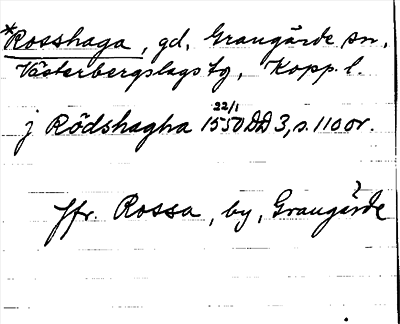 *Rosshaga, gd, Grangärde sn,
Västerbergslags tg, Kopp. l.
j Rödshagha 1550 22/1 DD 3, s. 110 or.
Jfr. Rossa, by, Grangärde